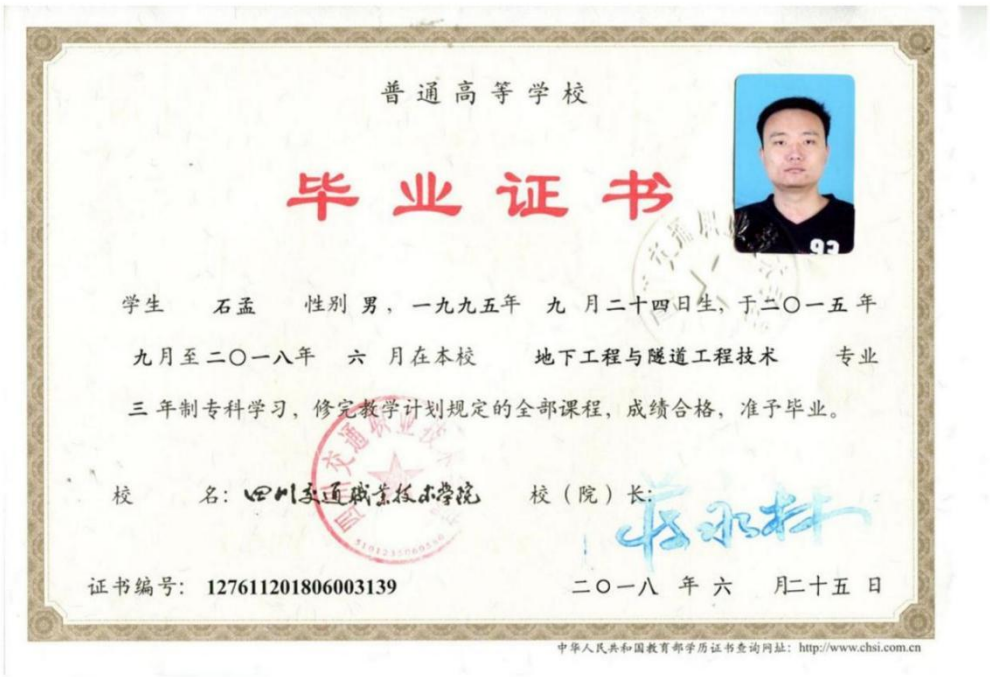 普通高等学校
毕业证书
93
学生 石孟 性别 男，一九九五年 九 月二十四日生，于二〇一五年
九月至二〇一八年 六 月在本校 地下工程与隧道工程技术 专业
三 年制专科学习，修完教学计划规定的全部课程，成绩合格，准予毕业。
校 名：四川交通职业技术学院 校（院）长：
证书编号： 127611201806003139 二〇一八 年 六 月二十五 日
中华人民共和国教育部学历证书查询网址：http://www.chsi.com.cn